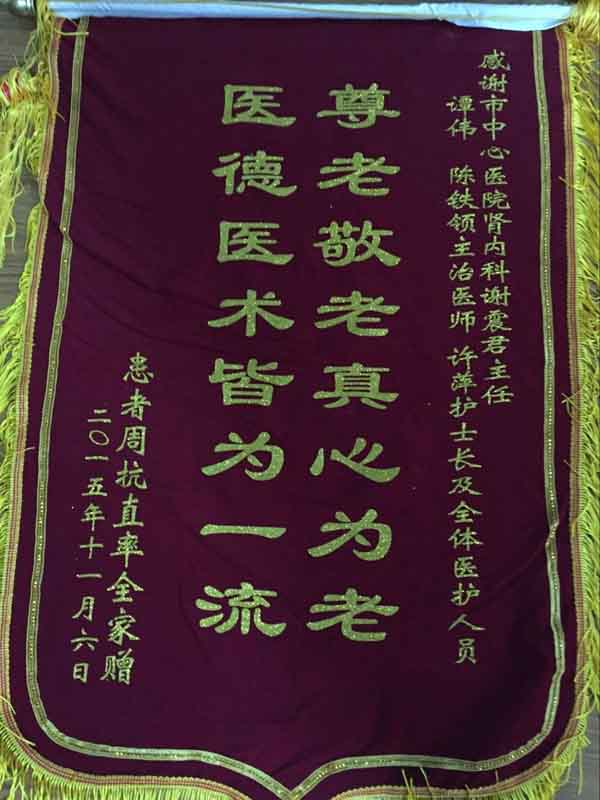 感谢市中心医院肾内科谢震君主任
谭伟 陈铁领主治医师 许萍护士长及全体医护人员
尊老敬老真心为老
医德医术皆为一流
患者周抗直率全家赠
二〇一五年十一月六日